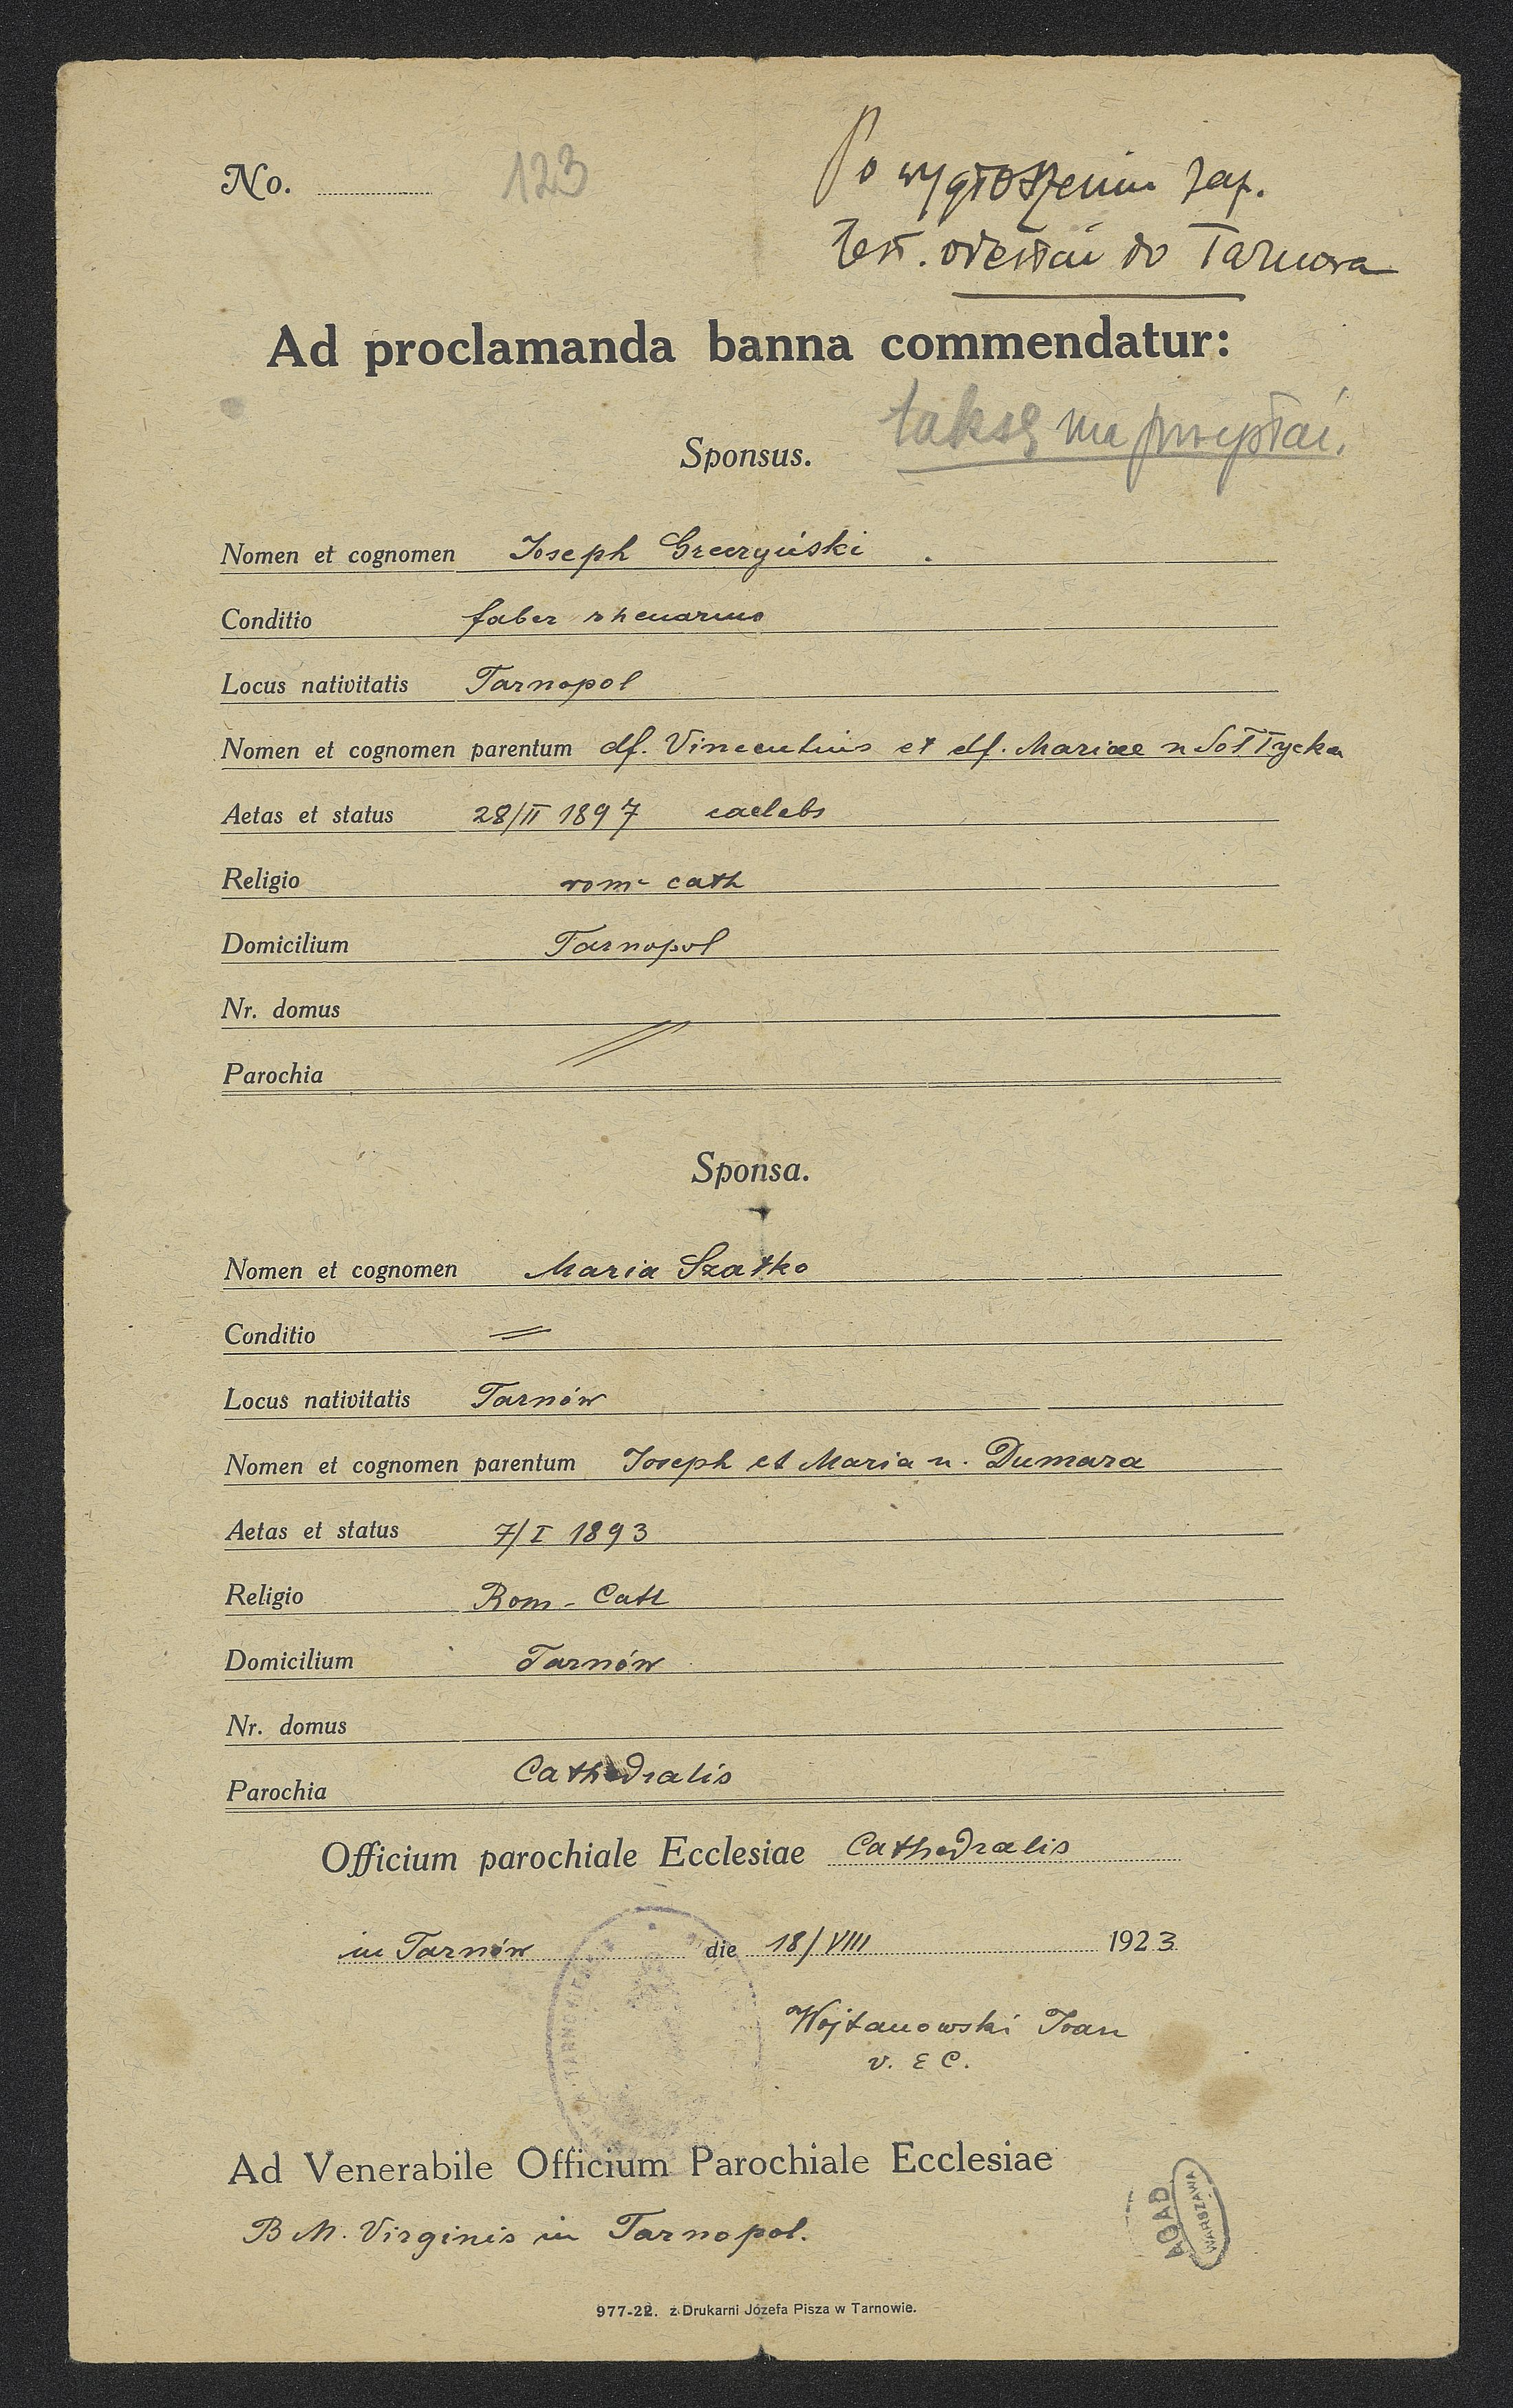 No. 123
Po wygłoszeniu zap.
odesłać do Tarnowa
Ad proclamanda banna commendatur:
taksę ma przysłać.
Sponsus.
Nomen et cognomen Joseph
Conditio faber
Locus nativitatis Tarnopol
Nomen et cognomen parentum df. Vincentius et df. Mariae n Sołtycka
Aetas et status 28/II 1897 caelebs
Religio rom- cath
Domicilium Tarnopol
Nr. domus
Parochia
Sponsa.
Nomen et cognomen Maria Szatko
Conditio =
Locus nativitatis Tarnów
Nomen et cognomen parentum Joseph et Maria n. Dumara
Aetas et status 7/I 1893
Religio Rom- Cath
Domicilium Tarnów
Nr. domus
Parochia Cathedralis
Officium parochiale Ecclesiae Cathedralis
in Tarnów die 18/VIII 1923
Wojtanowski Joan
v. E C.
Ad Venerabile Officium Parochiale Ecclesiae
B M. Virginis in Tarnopol.
AGAD
WARSZAWA
977-22. z Drukarni Józefa Pisza w Tarnowie.